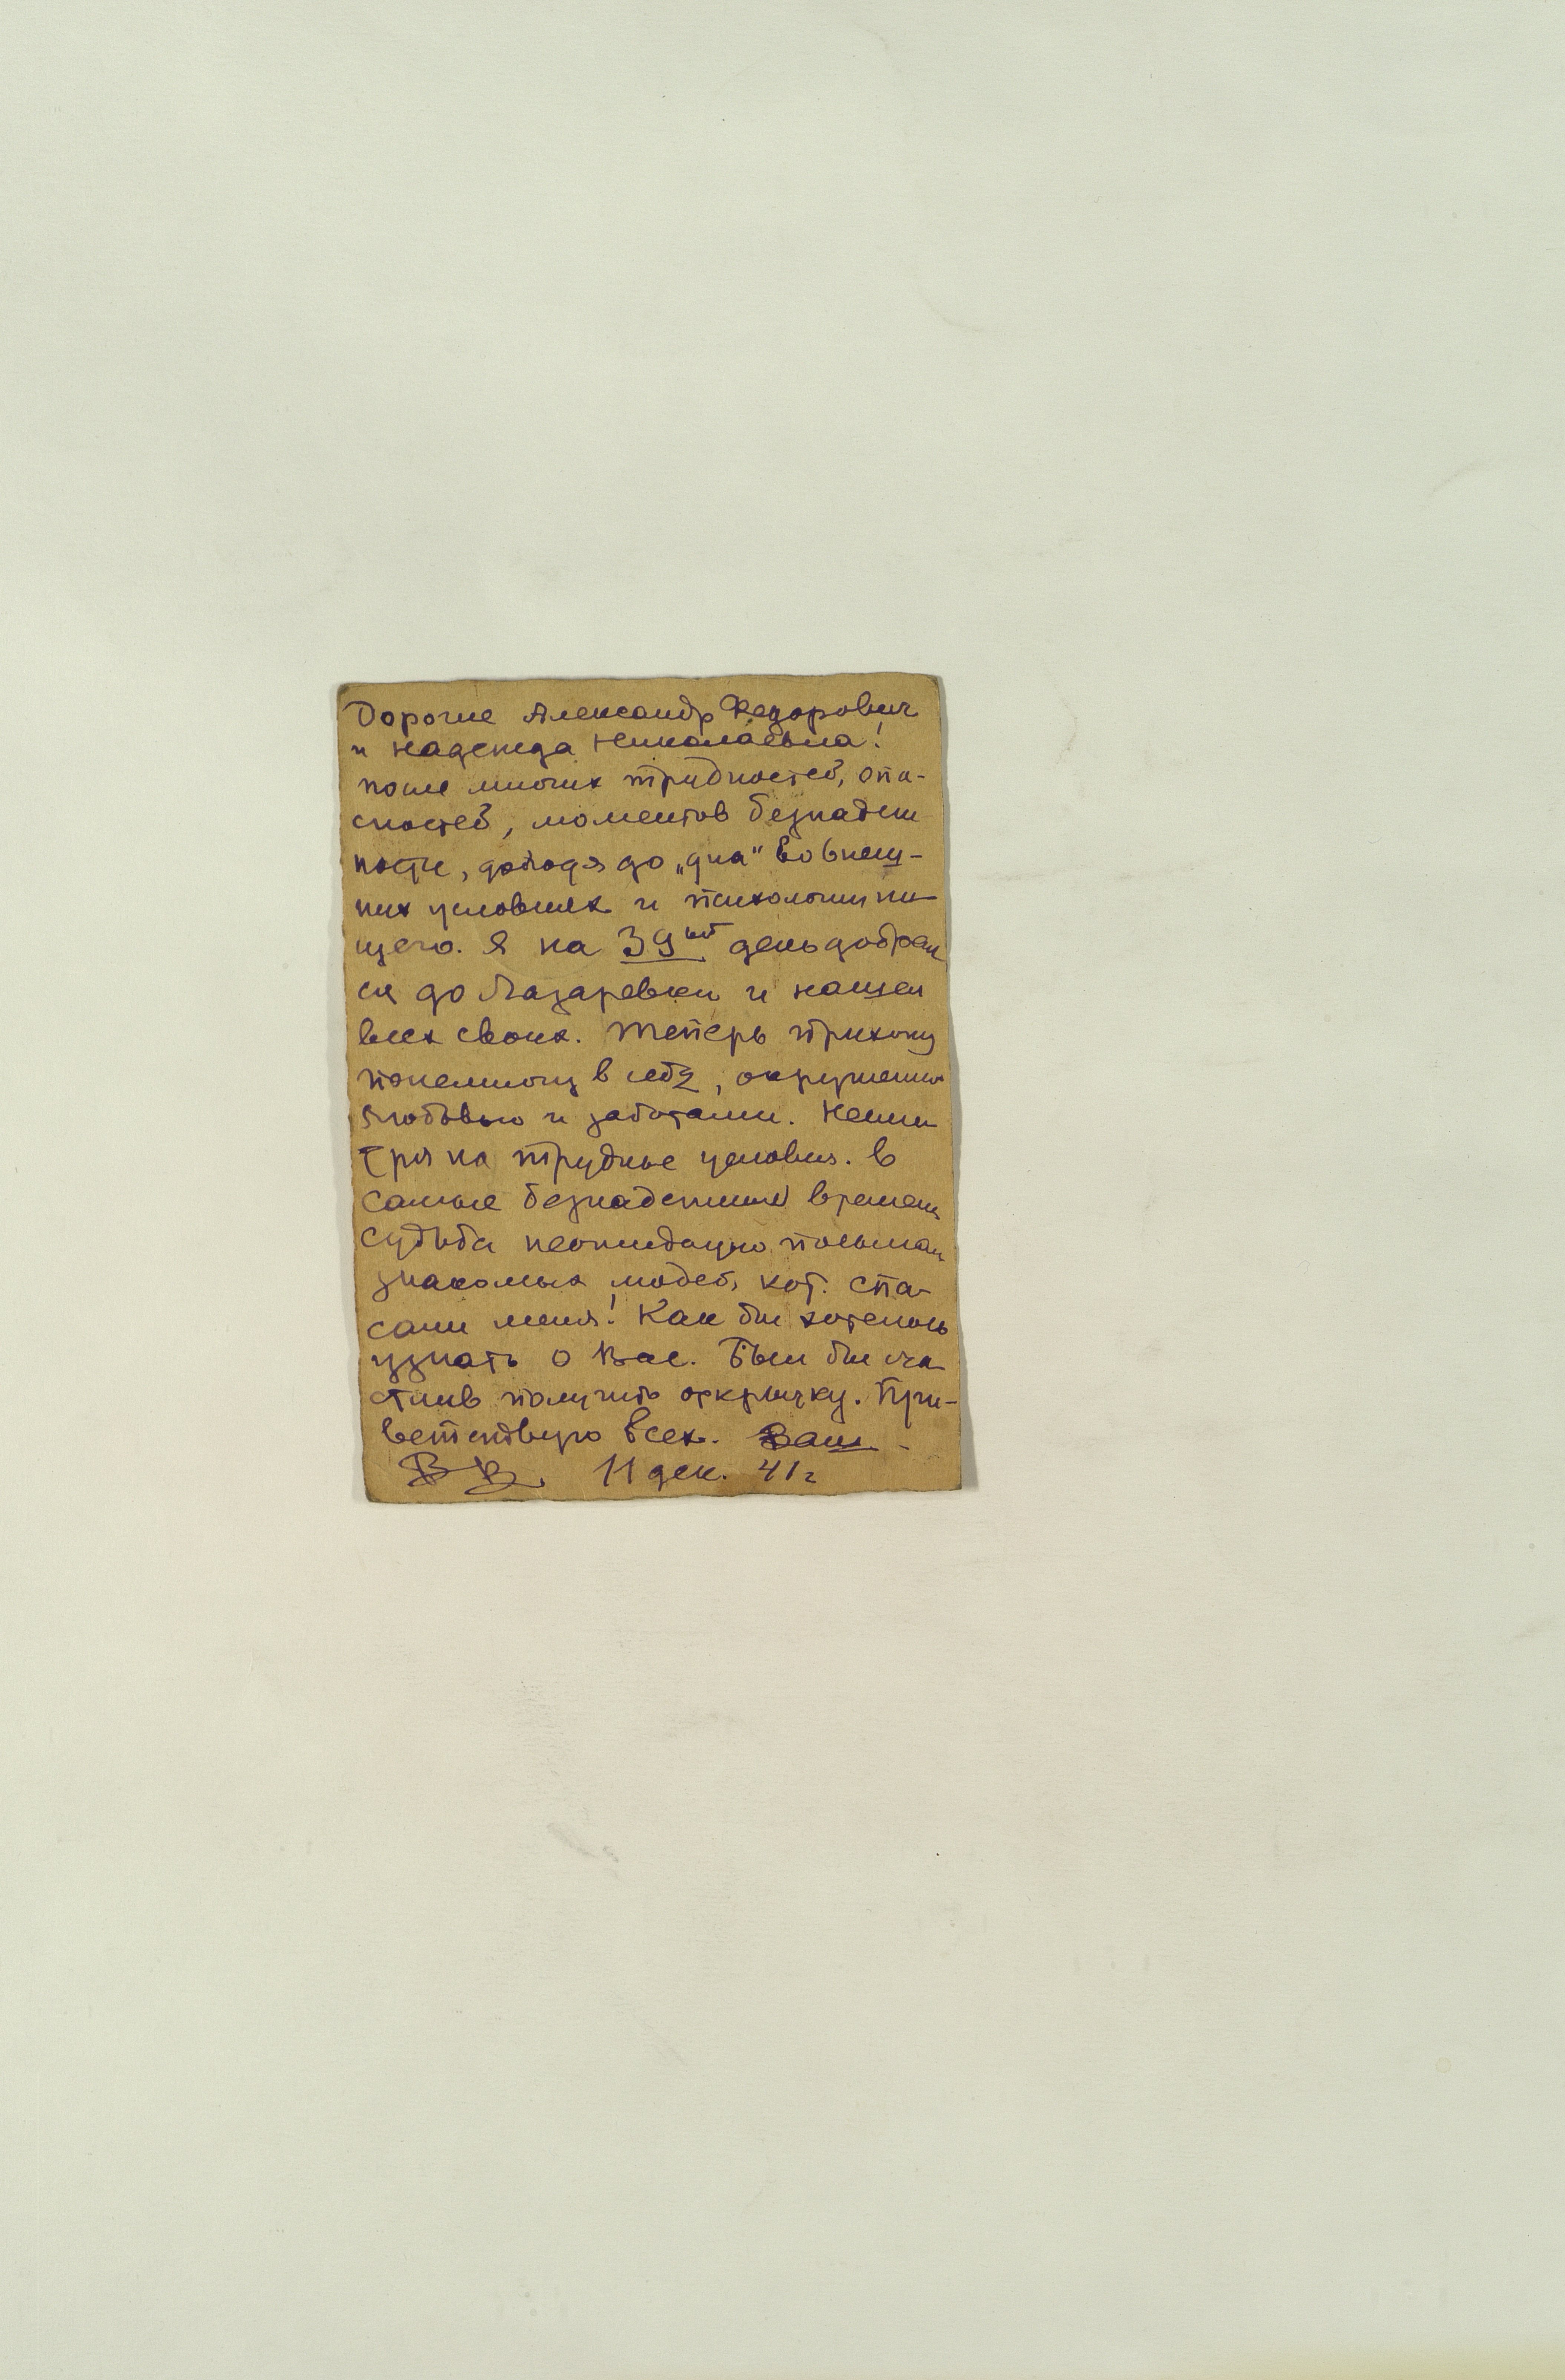 Дорогие Александр Федорович
и Надежда Николаевна!
после многих трудностей, опа-
сностей, моментов безнадеж
ности, доходя до „дна" во внеш-
них условиях и психологии ни
щего. Я на 39ый день добрал
ся до Лазаревки и нашел
всех своих. Теперь прихожу
понемногу в себя, окруженный
любовью и заботами. Несмо
тря на трудные условия. В
самые безнадежные времена
судьба неожиданно посылала
знакомых людей, кот. спа-
сали меня! Как бы хотелось
узнать о Вас. Был бы сча
стлив получить открытку. При-
ветствую всех. Ваш
ВВ 11 дек. 41 г